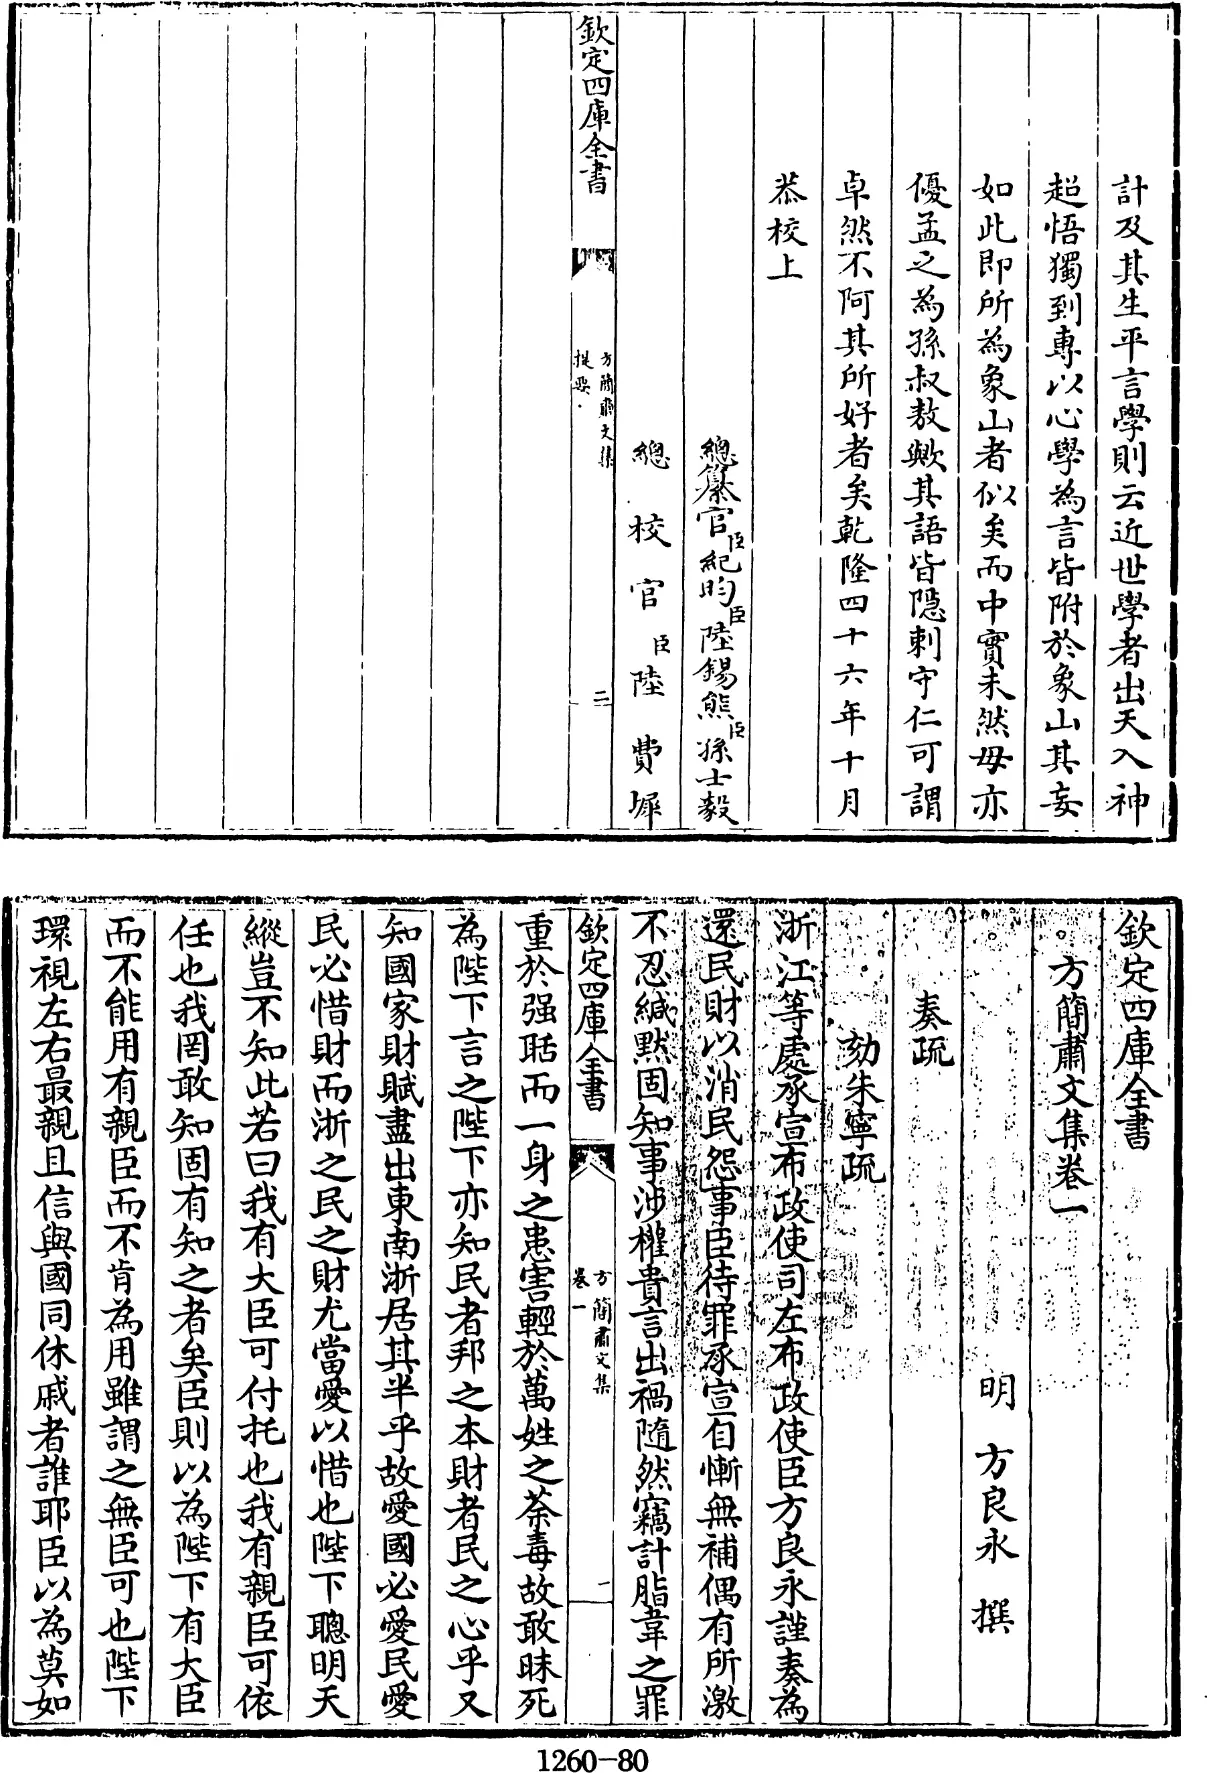 計及其生平言學則云近世學者出天入神
超悟獨到專以心學為言皆附於象山其妄
如此即所為象山者似矣而中實未然毋亦
優孟之為孫叔敖歟其語皆隱刺守仁可謂
卓然不阿其所好者矣乾隆四十六年十月
恭校上
總纂官臣紀昀臣陸錫熊臣孫士毅
總校官臣陸費墀
欽定四庫全書
方簡肅文集
提要
二
欽定四庫全書
方簡肅文集卷一
明 方良永 撰
奏疏
劾朱寧疏
浙江等處承宣布政使司左布政使臣方良永謹奏為
還民財以消民怨事臣待罪承宣自慚無補偶有所激
不忍緘默固知事涉權貴言出禍隨然竊計脂韋之罪
欽定四庫全書
方簡肅文集
卷一
一
重於强聒而一身之患害輕於萬姓之荼毒故敢昧死
為陛下言之陛下亦知民者邦之本財者民之心乎又
知國家財賦盡出東南浙居其半乎故愛國必愛民愛
民必惜財而浙之民之財尤當愛以惜也陛下聰明天
縱豈不知此若曰我有大臣可付托也我有親臣可依
任也我罔敢知固有知之者矣臣則以為陛下有大臣
而不能用有親臣而不肯為用雖謂之無臣可也陛下
環視左右最親且信與國同休戚者誰耶臣以為莫如
1260-80